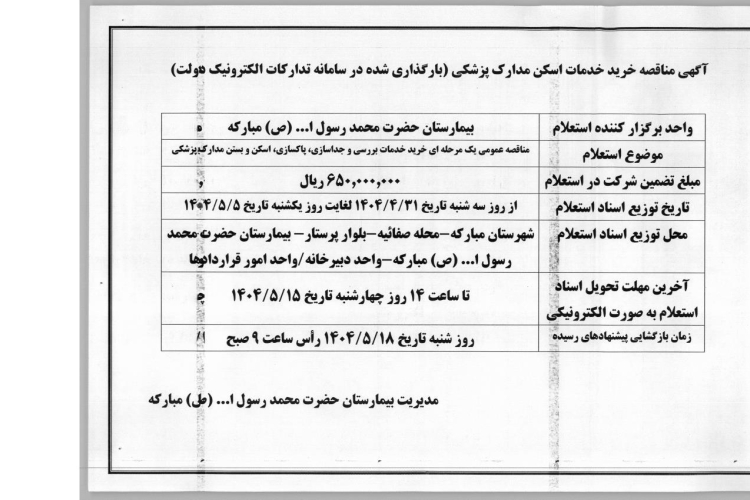 آگهی مناقصه خرید خدمات اسکن مدارک پزشکی (بارگذاری شده در سامانه تدارکات الکترونیک دولت)
واحد برگزار کننده استعلام بیمارستان حضرت محمد رسول ا... (ص) مبارکه
موضوع استعلام مناقصه عمومی یک مرحله ای خرید خدمات بررسی و جداسازی، پاکسازی، اسکن و بستن مدارک پزشکی
مبلغ تضمین شرکت در استعلام ۶۵۰,۰۰۰,۰۰۰ ریال
تاریخ توزیع اسناد استعلام از روز سه شنبه تاریخ ۱۴۰۴/۴/۳۱ لغایت روز یکشنبه تاریخ ۱۴۰۴/۵/۵
محل توزیع اسناد استعلام شهرستان مبارکه-محله صفائیه-بلوار پرستار- بیمارستان حضرت محمد
رسول ا... (ص) مبارکه-واحد دبیرخانه/واحد امور قراردادها
آخرین مهلت تحویل اسناد
استعلام به صورت الکترونیکی تا ساعت ۱۴ روز چهارشنبه تاریخ ۱۴۰۴/۵/۱۵
زمان بازگشایی پیشنهادهای رسیده روز شنبه تاریخ ۱۴۰۴/۵/۱۸ رأس ساعت ۹ صبح
مدیریت بیمارستان حضرت محمد رسول ا... (ص) مبارکه